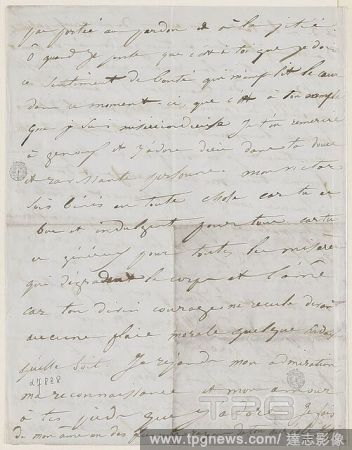 plus portée au pardon et à la pitié.
Ô quand je pense que c'est à toi que je dois
ces sentiments de bonté qui
dans ce moment-ci que c'est à ton exemple
que je suis miséricordieuse je t'en remercie
à genoux et j'adore dieu dans ta douce
et ravissante personne mon victor
sois béni en toute chose car tu es
bon et indulgent pour tous car tu
es généreux pour toutes les misères
qui dégradent le corps et l'âme
car ton divin courage ne recule devant
aucune plaie morale quelque
qu'elle soit. Je répands mon admiration
ma reconnaissance et mon amour
à tes pieds que j'adore. Je fais
de mon âme un des
a7888
TPG
www.tpgnews.com / 達志影像